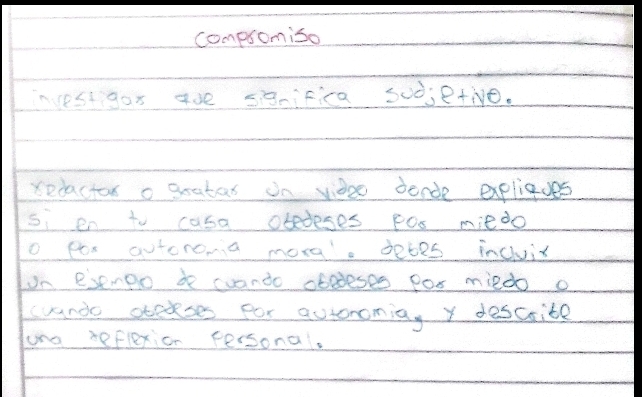 compromiso
investigar que significa sudjetivo.
redactar o grabar un video donde expliques
si en tu casa obedeses por miedo
o por autonomia moral. debes incluir
un ejempo de cuando obedeses por miedo o
cuando obedeses por autonomia, y describe
una reflexion personal.